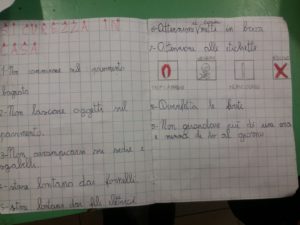 SICUREZZA IN
CASA
1-Non camminare sul pavimento
bagnato
2-Non lasciare oggetti sul
pavimento.
3-Non arrampicarsi su sedie e
sgabelli.
4-stare lontano dai fornelli
5-stare lontano dai fili elettrici
6-Attenzione mette in bocca
7-Attenzione alle etichette
8-
9-Non guardare più di una ora
e mezza di tv al giorno